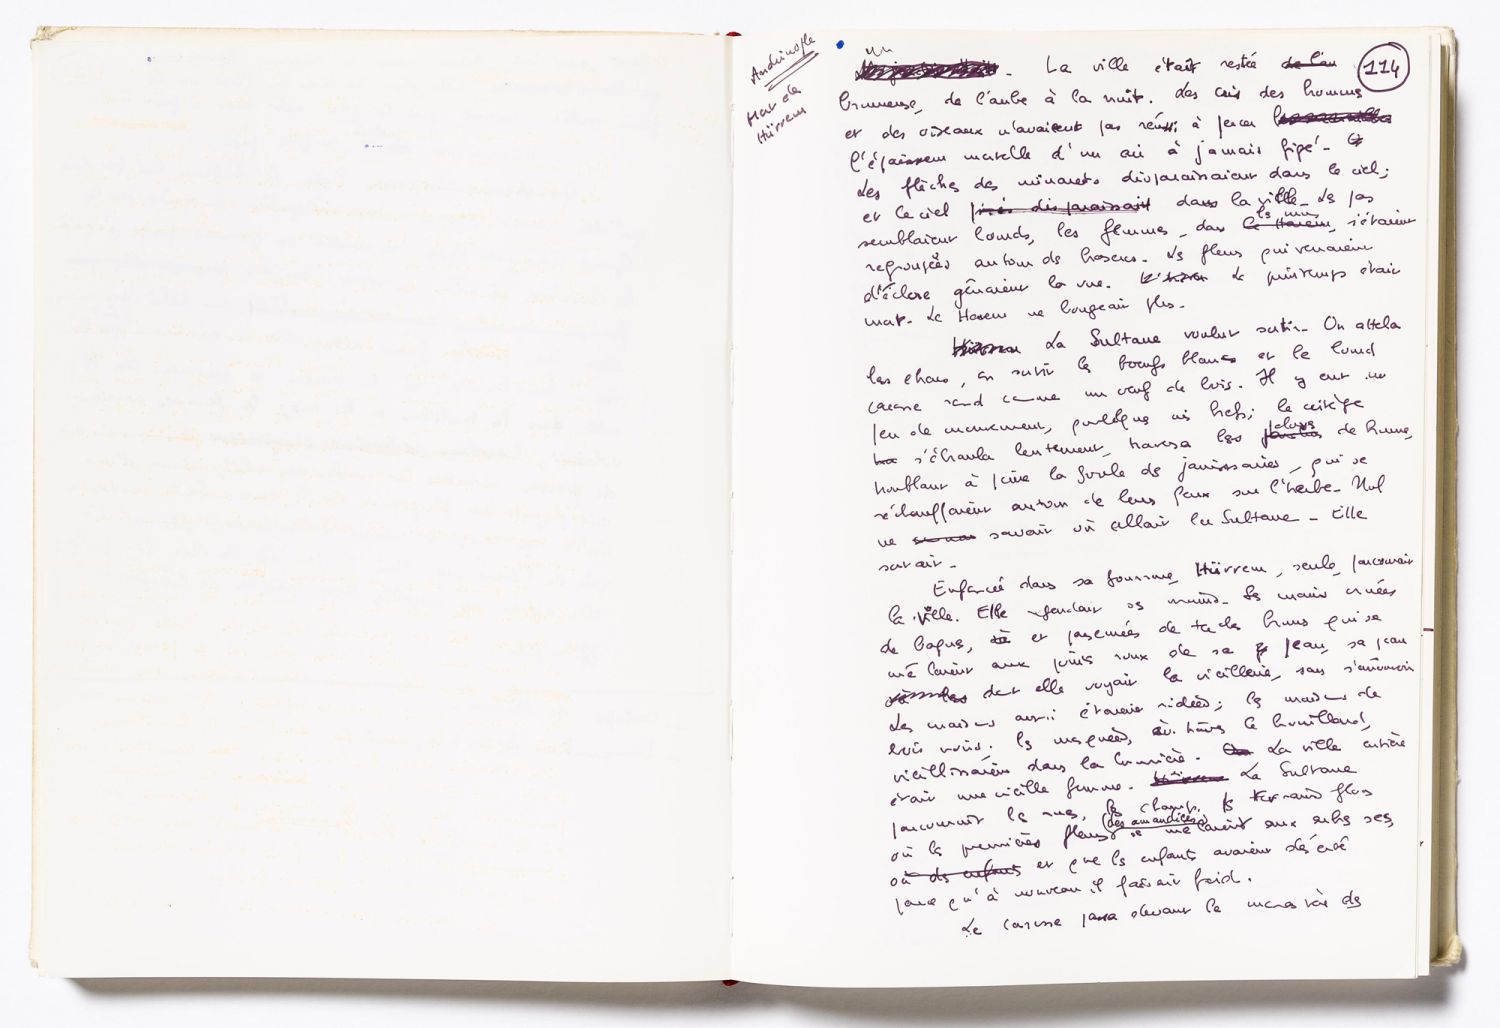 Andrinople
Hürrem
114
un
La ville était restée de l'au
brumeuse, de l'aube à la nuit. Les cris des hommes
et des oiseaux n'avaient pas réussi à percer
l'épaisseur nouvelle d'un air à jamais figé.
Les flèches des minarets disparaissaient dans le ciel;
et le ciel disparaissait dans la ville. Les pas
semblaient lourds, les femmes, dans le Harem, s'étaient
les murs
regroupées autour des braseros. Les fleurs qui venaient
d'éclore gênaient la vue. Le printemps était
mat. Le Harem ne bougeait plus.
Hürrem La Sultane voulut sortir. On attela
les chars, on sortit les bœufs blancs et le lourd
carrosse rond comme un œuf de bois. Il y eut un
peu de mouvement, quelques cris brefs; le cortège
s'ébranla lentement, traversa les de brume,
troublant à peine la foule des janissaires, qui se
réchauffaient autour de leurs feux sur l'herbe. Nul
ne savait où allait la Sultane. Elle
savait.
Enfoncée dans sa fourrure, Hürrem, seule, parcourait
la ville. Elle regardait ses mains. Ses mains ornées
de bagues, et parsemées de taches brunes qui se
mêlaient aux grains roux de sa peau, sa peau
dont elle voyait la vieillerie, sans s'émouvoir
Les maisons aussi étaient ridées; les maisons de
bois noirci, les mosquées, à travers le brouillard,
vieillissaient dans la lumière. La ville entière
était une vieille femme. Hürrem La Sultane
parcourait les rues, les champs, les terrains
(des amandiers)
où les premières fleurs se mêlaient aux
où des enfants et que les enfants avaient déserté
parce qu'à nouveau il faisait froid.
Le carrosse passa devant le monastère des